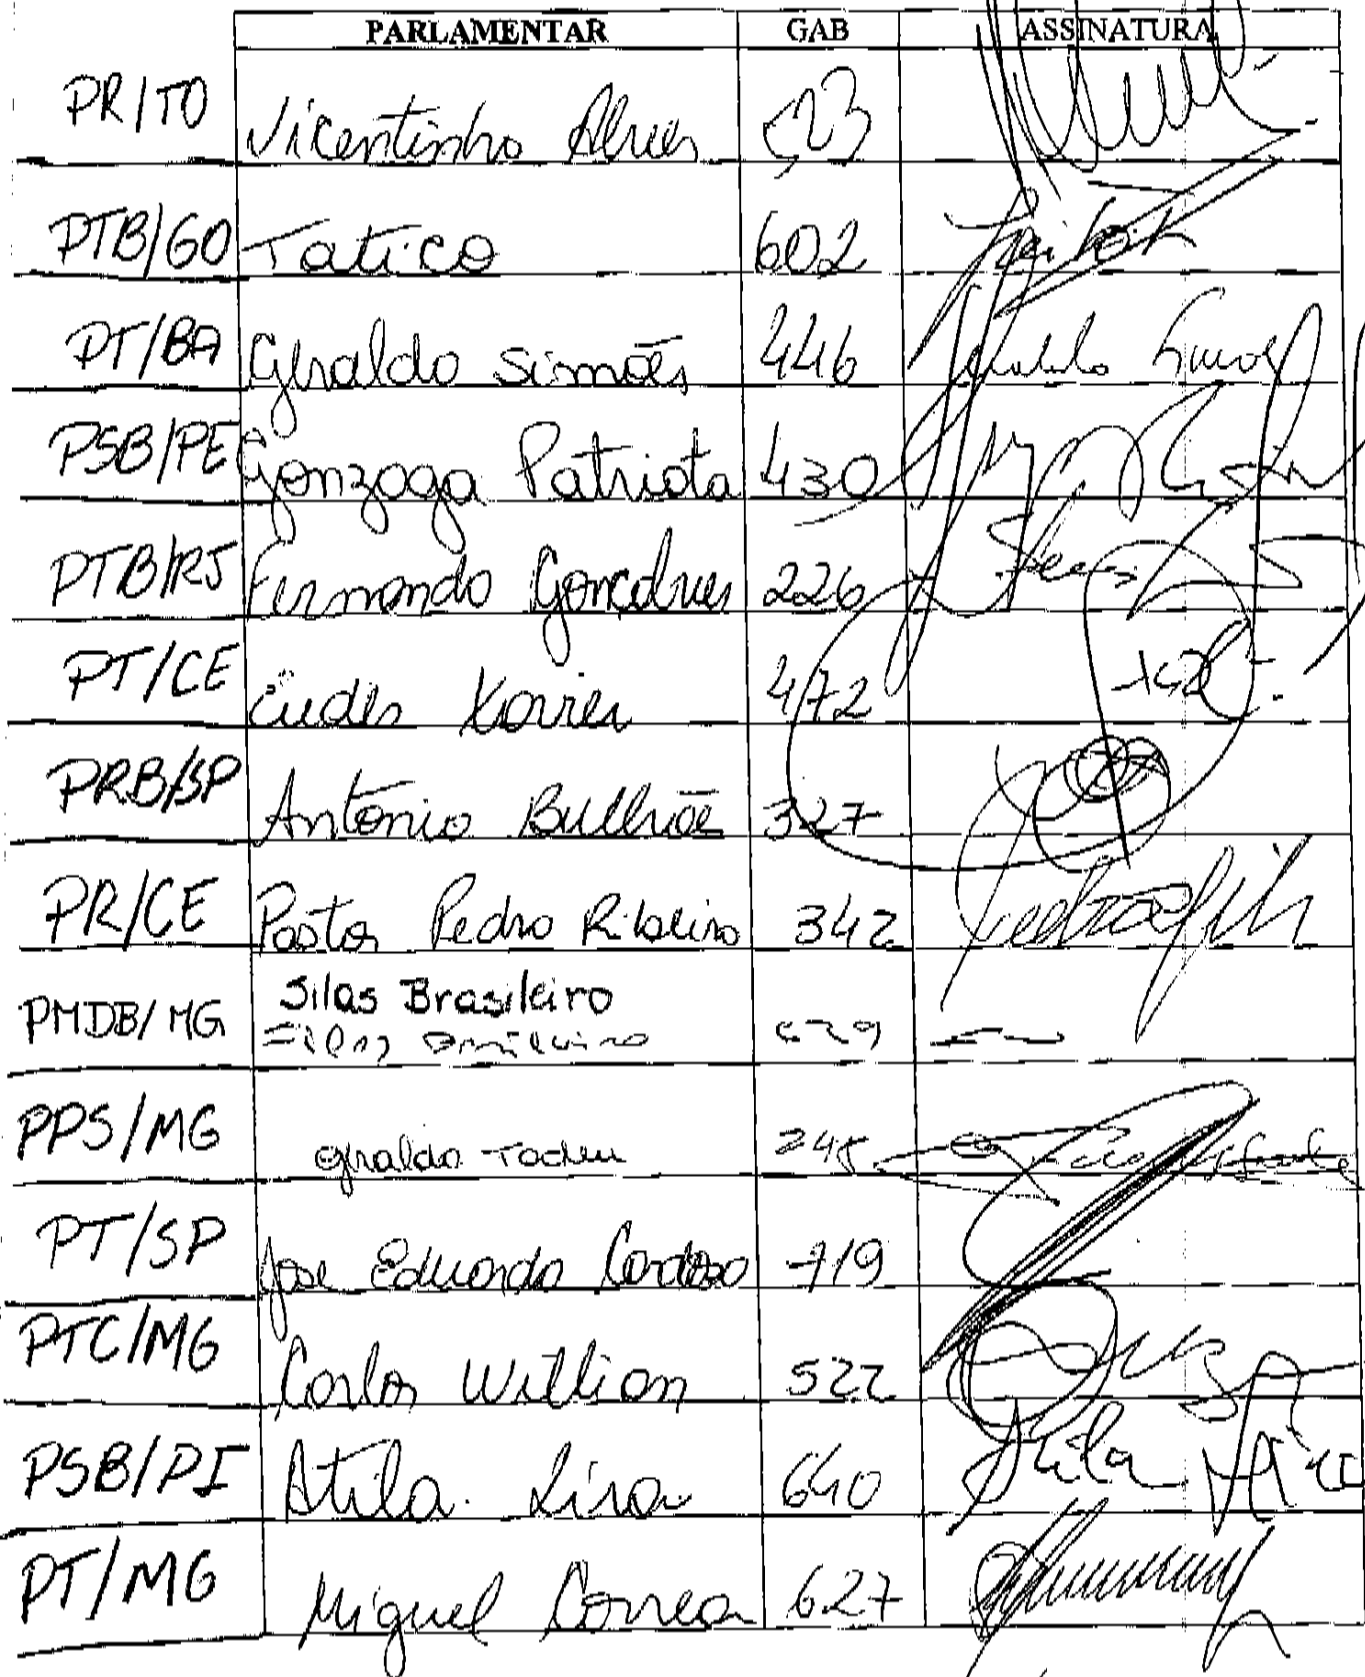 PARLAMENTAR GAB ASSINATURA
PR/TO Vicentinho Alves
PTB/GO Tatico 602
PT/BA Geraldo Simões 446
PSB/PE Gonzaga Patriota 430
PTB/RJ Fernando Gonçalves 226
PT/CE Eudes Xavier 472
PRB/SP Antonio Bulhões 327
PR/CE Pastor Pedro Ribeiro 342
PMDB/MG Silas Brasileiro
Silas Brasileiro 629
PPS/MG Geraldo Tadeu 245
PT/SP José Eduardo Cardozo 719
PTC/MG Carlos Willian 522
PSB/PI Atila Lira 640 Atila Lira
PT/MG Miguel Correa 627